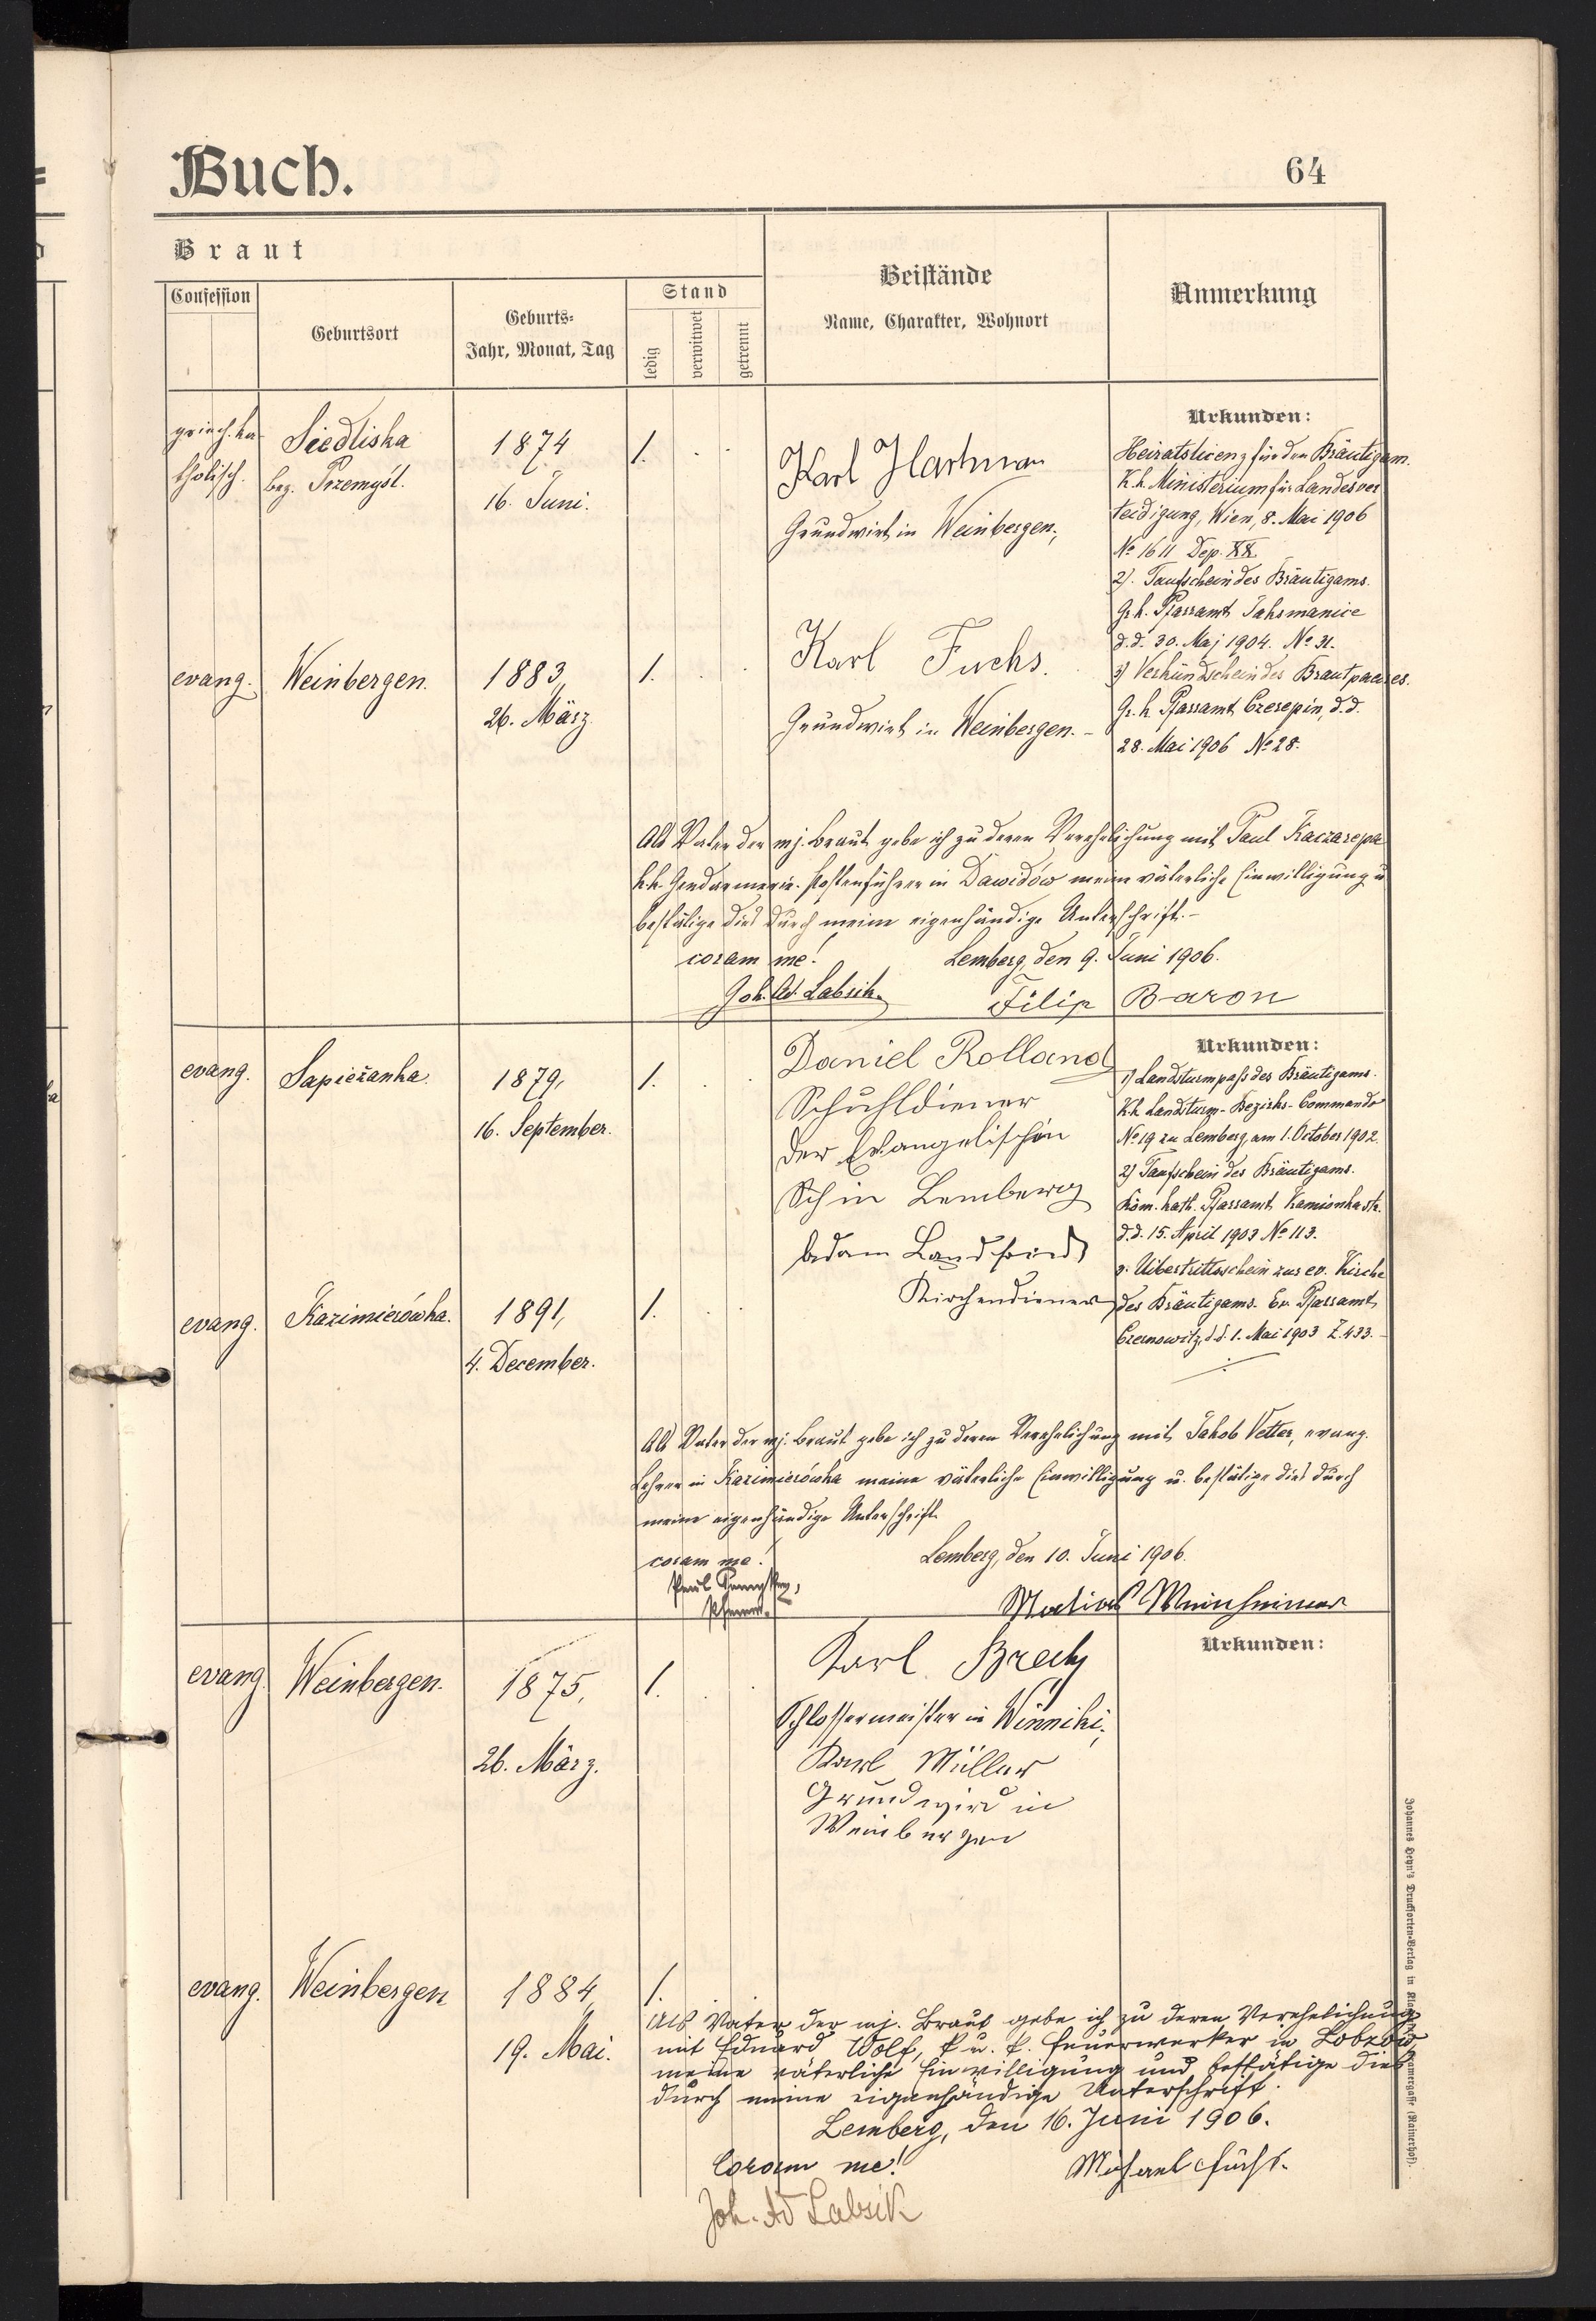 Buch.
64
Braut
Beistände
Name, Charakter, Wohnort
Anmerkung
Confession
Geburtsort
Geburts-
Jahr, Monat, Tag
Stand
ledig
verwitwet
getrennt
griech. ka-
tholisch.
Siedliska
bez. Przemyśl.
1874
16. Juni.
1.
Karl Hartman
Grundwirt in Weinbergen;
Urkunden:
Heiratslicenz für den Bräutigam.
K.k. Ministerium für Landesver
teidigung, Wien, 8. Mai 1906
No 1611 Dep. XX.
2). Taufschein des Bräutigams.
Gr. k. Pfarramt
d.d. 30. Maj 1904. No 31.
3) Verkündschein des Brautpaares.
Gr. k. Pfarramt Czerepin, d.d.
28. Mai 1906 No 28.
evang.
Weinbergen.
1883,
26. März.
1.
Karl Fuchs.
Grundwirt in Weinbergen. -
Als Vater der mj. Braut gebe ich zu deren Verehelichung mit Paul Kaczarepa
k.k. Gendarmerie-Postenführer in Dawidów meine väterliche Einwilligung u
bestätige dies durch meine eigenhändige Unterschrift. -
coram me!
Lemberg, den 9. Juni 1906.
Joh. Ad. Labsik.
Filip Baron
evang.
Sapieżanka.
1879,
16. September.
1.
Daniel Rolland
Schuhldiener
der Evangelischen
Sch in Lemberg
Adam Landfried
Kirchendiener
Urkunden:
1) Landsturmpaß des Bräutigams.
K.k. Landsturm-Bezirks-Commando
No 19 zu Lemberg, am 1. October 1902.
2) Taufschein des Bräutigams.
Röm. kath. Pfarramt Kamionka str.
d.d. 15. April 1903 No 113.
3. Uibertrittsschein zur ev. Kirche
des Bräutigams. Ev. Pfarramt,
Czernowitz, d.d. 1. Mai 1903 Z. 433. -
evang.
Kazimierówka.
1891,
4. December.
1.
Als Vater der mj. Braut gebe ich zu deren Verehelichung mit Jakob Vetter, evang.
Lehrer in Kazimierówka meine väterliche Einwilligung u. bestätige dies durch
meine eigenhändige Unterschrift.
coram me!
Lemberg, den 10. Juni 1906.
Paul
Matias Weinheimer
evang.
Weinbergen.
1875,
26. März.
1.
Karl Brech
Schlossermeister in Winniki;
Karl Müller
Grundwird in
Weinbergen
Urkunden:
evang.
Weinbergen
1884,
19. Mai.
1.
Als Vater der mj. Braut gebe ich zu deren Verehelichung
mit Eduard Wolf, k. u. k. Feuerwerker in Lobzów
meine väterliche Einwilligung und bestätige dies
durch meine eigenhändige Unterschrift.
Lemberg, den 16. Juni 1906.
Coram me!
Michael Fuchs.
Joh. Ad Labsik
Johannes Heyn's Drucksorten-Verlag in